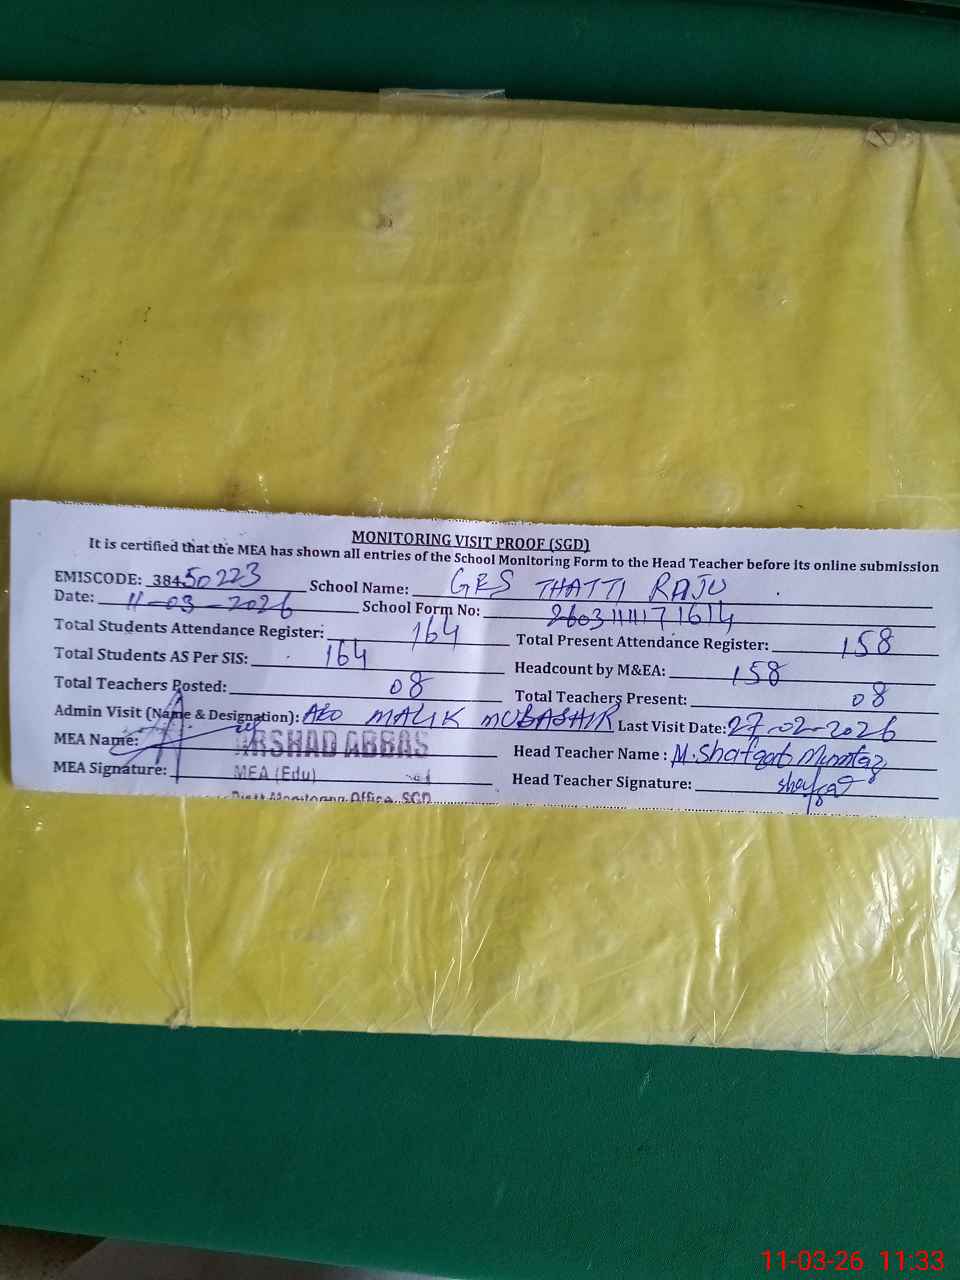 MONITORING VISIT PROOF (SGD)
It is certified that the MEA has shown all entries of the School Monitoring Form to the Head Teacher before its online submission
EMISCODE: 38450223 School Name: GES THATTI RAJU
Date: 11-03-2026 School Form No:
Total Students Attendance Register: 164 Total Present Attendance Register: 158
Total Students AS Per SIS: 164 Headcount by M&EA: 158
Total Teachers Posted: 08 Total Teachers Present: 08
Admin Visit (Name & Designation): AEO MALIK MUBASHIR Last Visit Date: 27-02-2026
MEA Name: ARSHAD ABBAS Head Teacher Name : M. Shafqat Mumtaz
MEA Signature: MEA (Edu) Head Teacher Signature:
Distt Monitoring Office, SGD
11-03-26 11:33